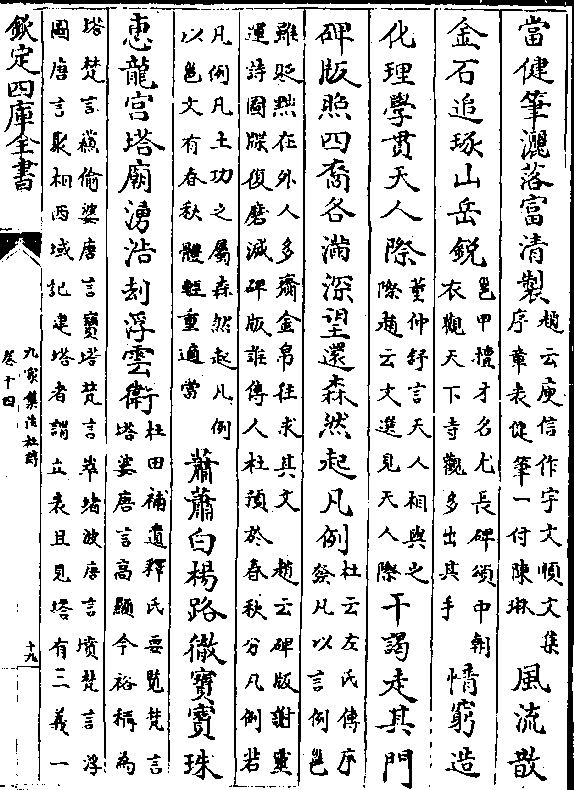 當健筆灑落富清製趙云庾信作宇文順文集序章表健筆一付陳琳風流散
金石追琢山岳銳邕甲擅才名尤長碑頌中朝衣觀天下寺觀多出其手情窮造
化理學貫天人際董仲舒言天人相與之際趙云文選見天人際干謁走其門
碑版照四裔各滿深望還森然起凡例杜云左氏傳序發凡以言例邕
雖貶黜在外人多齎金帛往求其文 趙云碑版謝靈運詩圖牒復磨滅碑版誰傳人杜預於春秋分凡例若
凡例凡土功之屬森然起凡例以邕文有春秋體輕重適當蕭蕭白楊路徹寶寶珠
惠龍宮塔廟湧浩刦浮雲衛杜田補遺釋氏要覽梵言塔婆唐言高顯今俗稱為
塔梵言蘓偷婆唐言寶塔梵言崒堵波唐言墳梵言浮圖唐言聚相西域記建塔者謂立表且見塔有三義一
欽定四庫全書
九家集注杜詩
卷十四
十九